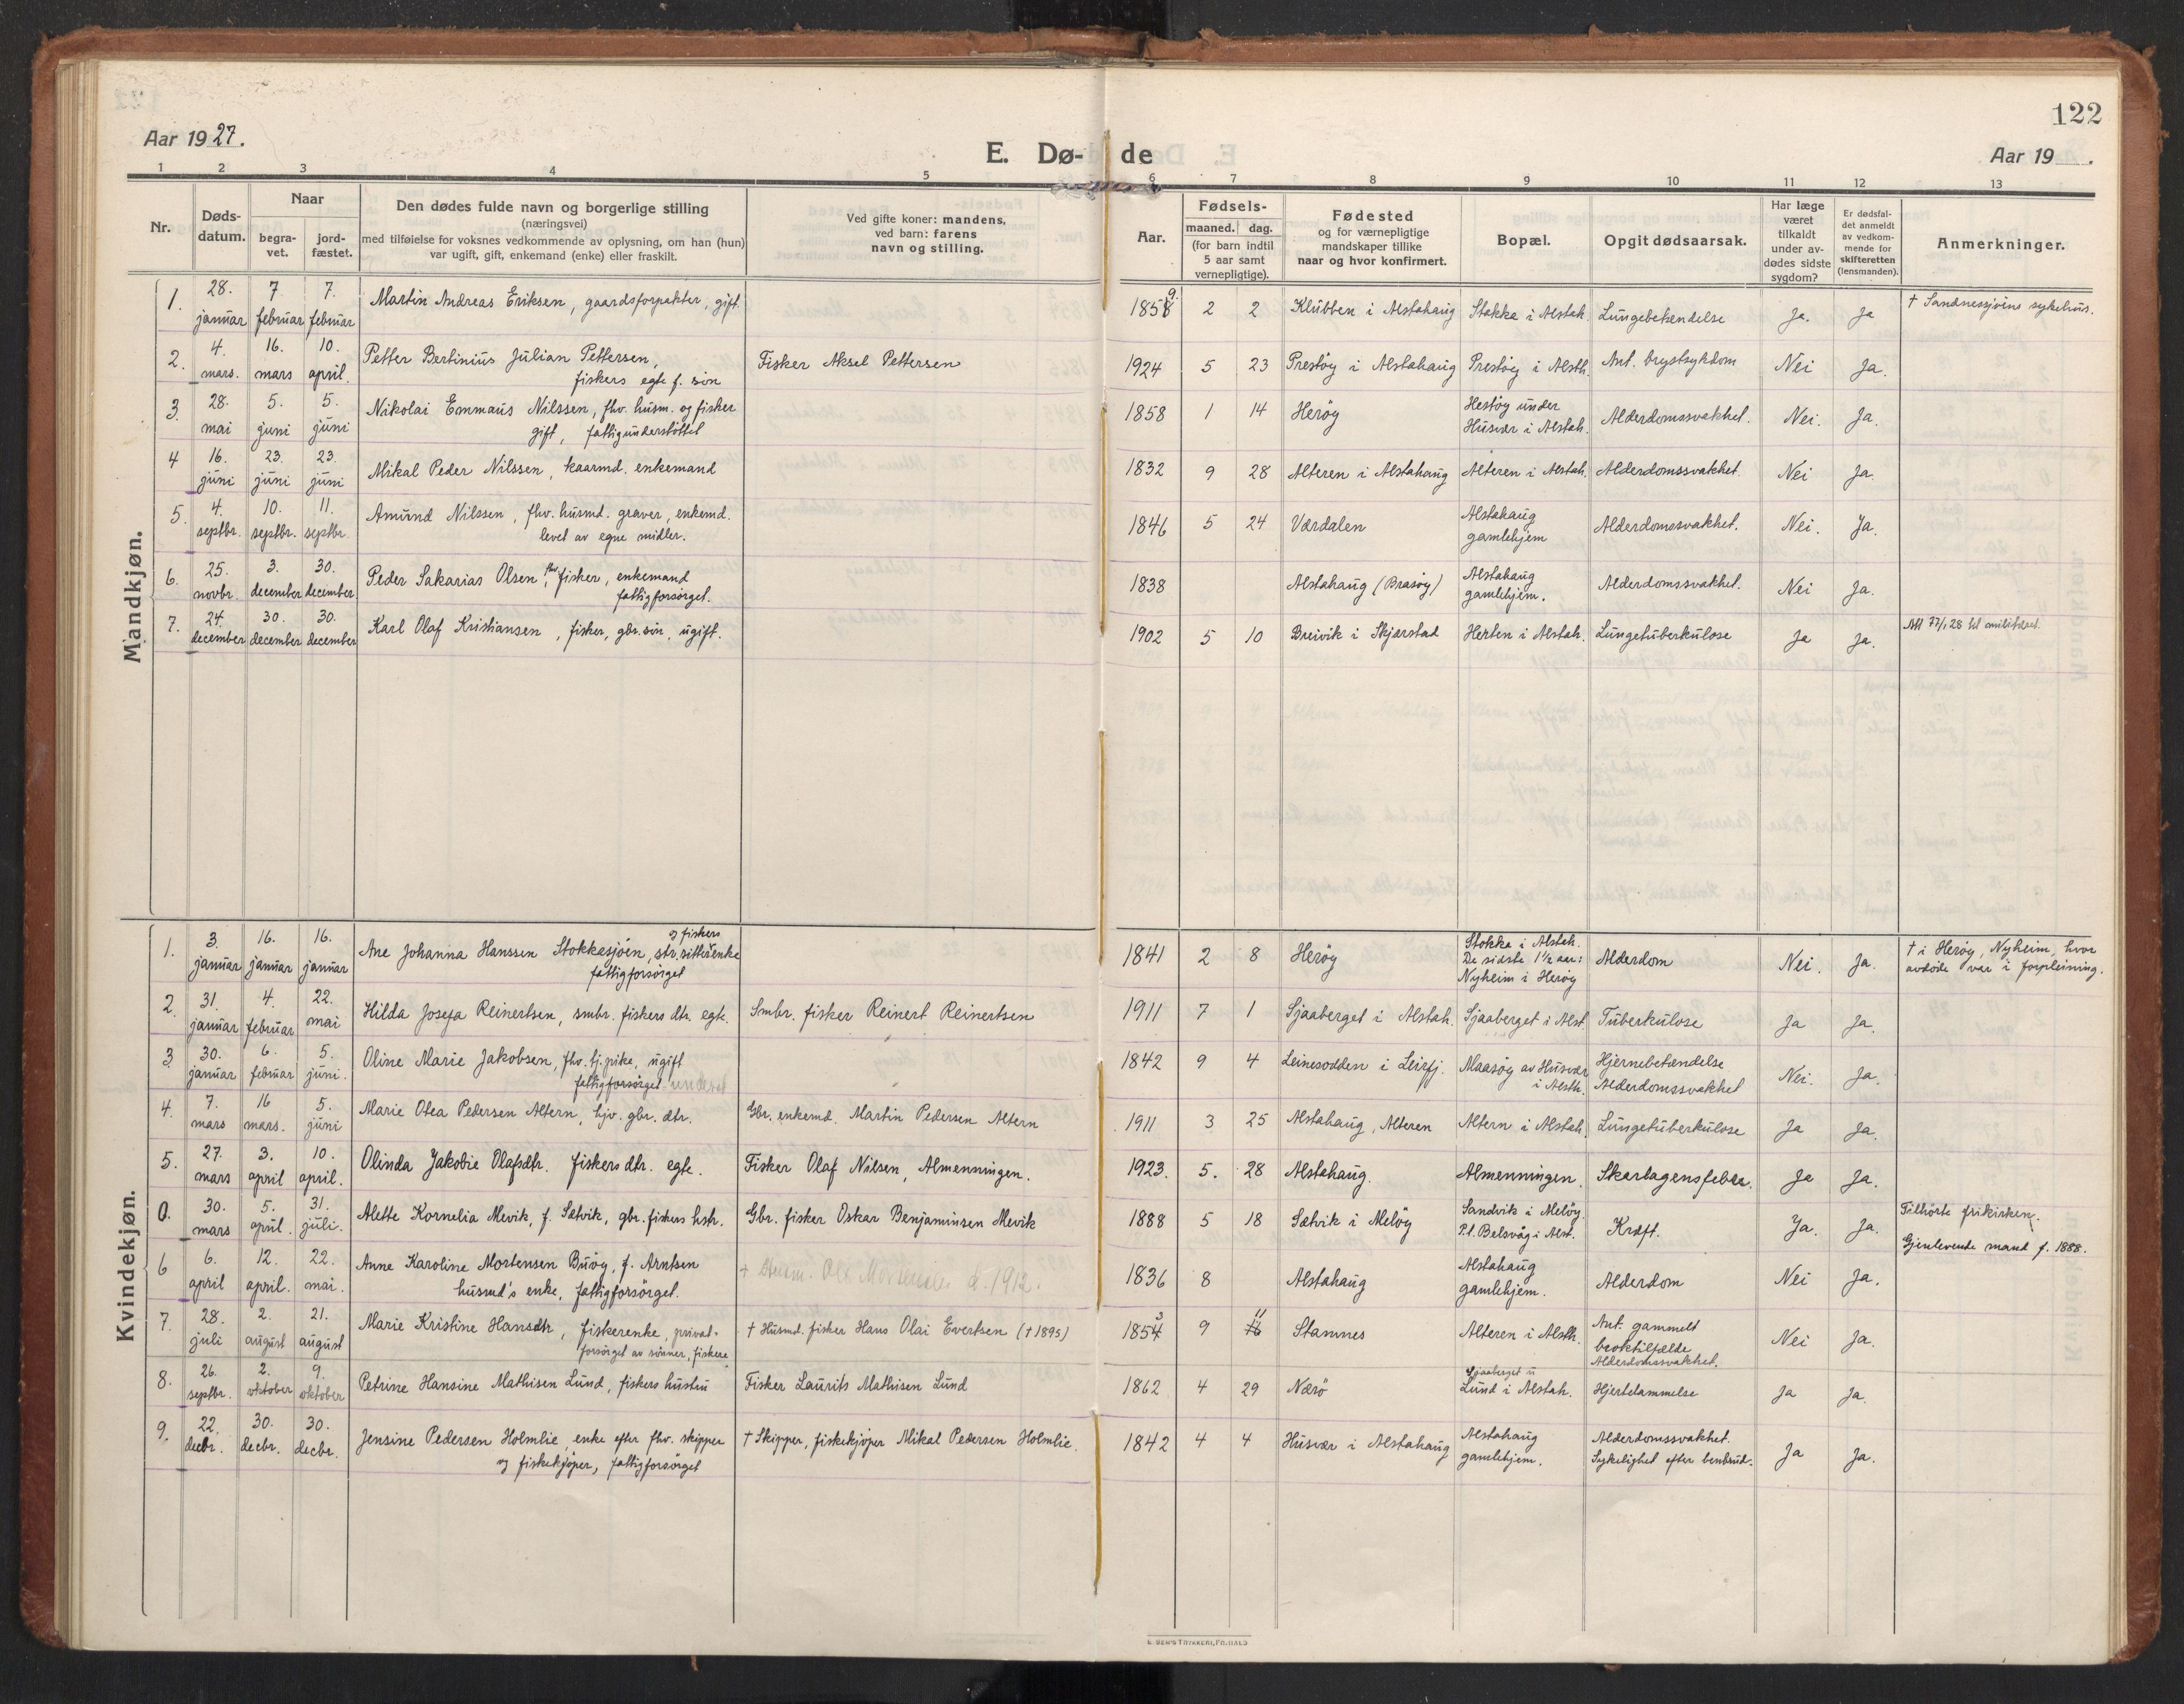 122
Aar 1927.
E. Dø- de
Aar 19 .
1 2 3 4 5 6 7 8 9 10 11 12 13
Nr.
Døds-
datum.
Naar
begra-
vet.
jord-
fæstet.
Den dødes fulde navn og borgerlige stilling
(næringsvei)
med tilføielse for voksnes vedkommende av oplysning, om han (hun)
var ugift, gift, enkemand (enke) eller fraskilt.
Ved gifte koner: mandens,
ved barn: farens
navn og stilling.
Aar.
Fødsels-
maaned. dag.
(for barn indtil
5 aar samt
vernepligtige).
Fødested
og for værnepligtige
mandskaper tillike
naar og hvor konfirmert.
Bopæl.
Opgit dødsaarsak.
Har læge
været
tilkaldt
under av-
dødes sidste
sygdom?
Er dødsfal-
det anmeldt
av vedkom-
mende for
skifteretten
(lensmanden).
Anmerkninger.
Mandkjøn.
1. 28. januar 7 februar 7. februar Martin Andreas Eriksen, gaardsforpakter, gift. 1859 2 2 Klubben i Alstahaug Stokka i Alstah. Lungebetendelse Ja. Ja † Sandnessjøens sykehus.
2. 4. mars. 16. mars 10. april. Petter Bertinius Julian Pettersen,
fiskers egte f. søn Fisker Aksel Pettersen 1924 5 23 Prestøy i Alstahaug Prestøy i Alsth. Ant. brystsykdom Nei Ja.
3. 28. mai 5. juni 5. juni Nikolai Emmaus Nilssen, fhv. husm. og fisker
gift, fattigunderstøttet 1858 1 14 Herøy Hestøy under
Husvær i Alstah. Alderdomssvakhet. Nei. Ja.
4 16. juni 23. juni 23. juni Mikal Peder Nilssen, kaarmd. enkemand 1832 9 28 Alteren i Alstahaug Alteren i Alstah. Alderdomssvakhet. Nei Ja.
5. 4. septbr. 10. septbr. 11. septbr. Amund Nilssen, fhv. husmd. graver, enkemd.
levet av egne midler. 1846 5 24 Værdalen Alstahaug
gamlehjem Alderdomssvakhet. Nei. Ja.
6. 25. novbr. 3. december 30. december Peder Sakarias Olsen, fhv. fisker, enkemand
fattigforsørget. 1838 Alstahaug (Brasøy) Alstahaug
gamlehjem. Alderdomssvakhet. Nei Ja.
7. 24. december 30. december 30. december Karl Olaf Kristiansen, fisker, gbr. søn, ugift. 1902 5 10 Breivik i Skjærstad Herten i Alstah. Lungetuberkulose Ja Ja. 28 til militæret.
Kvindekjøn.
1. 3. januar 16. januar 16. januar Ane Johanna Hanssen Stokkesjøen, og fiskers enke
fattigforsørget 1841 2 8 Herøy Stokka i Alstah.
De sidste 1½ aar:
Nyheim i Herøy Alderdom Nei. Ja. † i Herøy, Nyheim, hvor
avdøde var i forpleining.
2. 31. januar 4. februar 22. mai Hilda Josefa Reinertsen, smbr. fiskers dtr. egte. Smbr. fisker Reinert Reinertsen 1911 7 1 Sjaaberget i Alstah. Sjaaberget i Alst. Tuberkulose Ja Ja.
3. 30. januar 6. februar 5. juni. Oline Marie Jakobsen, fhv. tj.pike, ugift
fattigforsørget 1842 9 4 Leinesodden i Leirfj. Maasøy av Husvær
i Alsth. Hjernebetændelse
Alderdomssvakhet Nei. Ja.
4. 7. mars 16 mars. 5. juni Marie Otea Pedersen Altern, hjv. gbr. dtr. Gbr. enkemd. Martin Pedersen Altern 1911 3 25 Alstahaug, Alteren Altern i Alstah. Lungetuberkulose Ja Ja.
5. 27. mars 3. april 10. april. Olinda Jakobie Olafsdtr. fiskers dtr. egte. Fisker Olaf Nilsen, Almenningen. 1923. 5. 28 Alstahaug. Almenningen. Skarlagensfeber. Ja Ja.
0. 30. mars 5. april. 31. juli. Alette Kornelia Mevik, f. Sætvik, gbr. fiskers hstr. Gbr. fisker Oskar Benjaminsen Mevik 1888 5 18 Sætvik i Meløy Sandvik i Meløy.
P.t. Belsvåg i Alst. Kræft. Ja. Ja. Tilhørte frikirken.
Gjenlevende mand f. 1888.
6 6. april 12. april. 22. mai. Anne Karoline Mortensen Buøy, f. Arntsen
husmd's enke, fattigforsørget. d. 1912. 1836 8 Alstahaug Alstahaug
gamlehjem. Alderdom Nei Ja.
7. 28. juli 2. august 21. august Marie Kristine Hansdtr, fiskerenke, privat-
forsørget av sønner, fiskere † Husmd. fisker Hans Olai Evertsen († 1895) 1853 9 11 Stamnes Alteren i Alsth. Ant. gammelt
broktilfælde
Alderdomssvakhet. Nei Ja.
8. 26. septbr. 2. oktober 9. oktober Petrine Hansine Mathisen Lund, fiskers hustru Fisker Laurits Mathisen Lund 1862 4 29 Nærø Sjaaberget u
Lund i Alstah. Hjertelammelse Ja Ja.
9. 22. decbr. 30. decbr. 30. decbr. Jensine Pedersen Holmlie, enke efter fhv. skipper
og fiskekjøper, fattigforsørget † Skipper, fiskekjøper Mikal Pedersen Holmlie. 1842 4 4 Husvær i Alstahaug Alstahaug
gamlehjem. Alderdomssvakhet.
Sykelighet efter benbrud. Ja Ja.